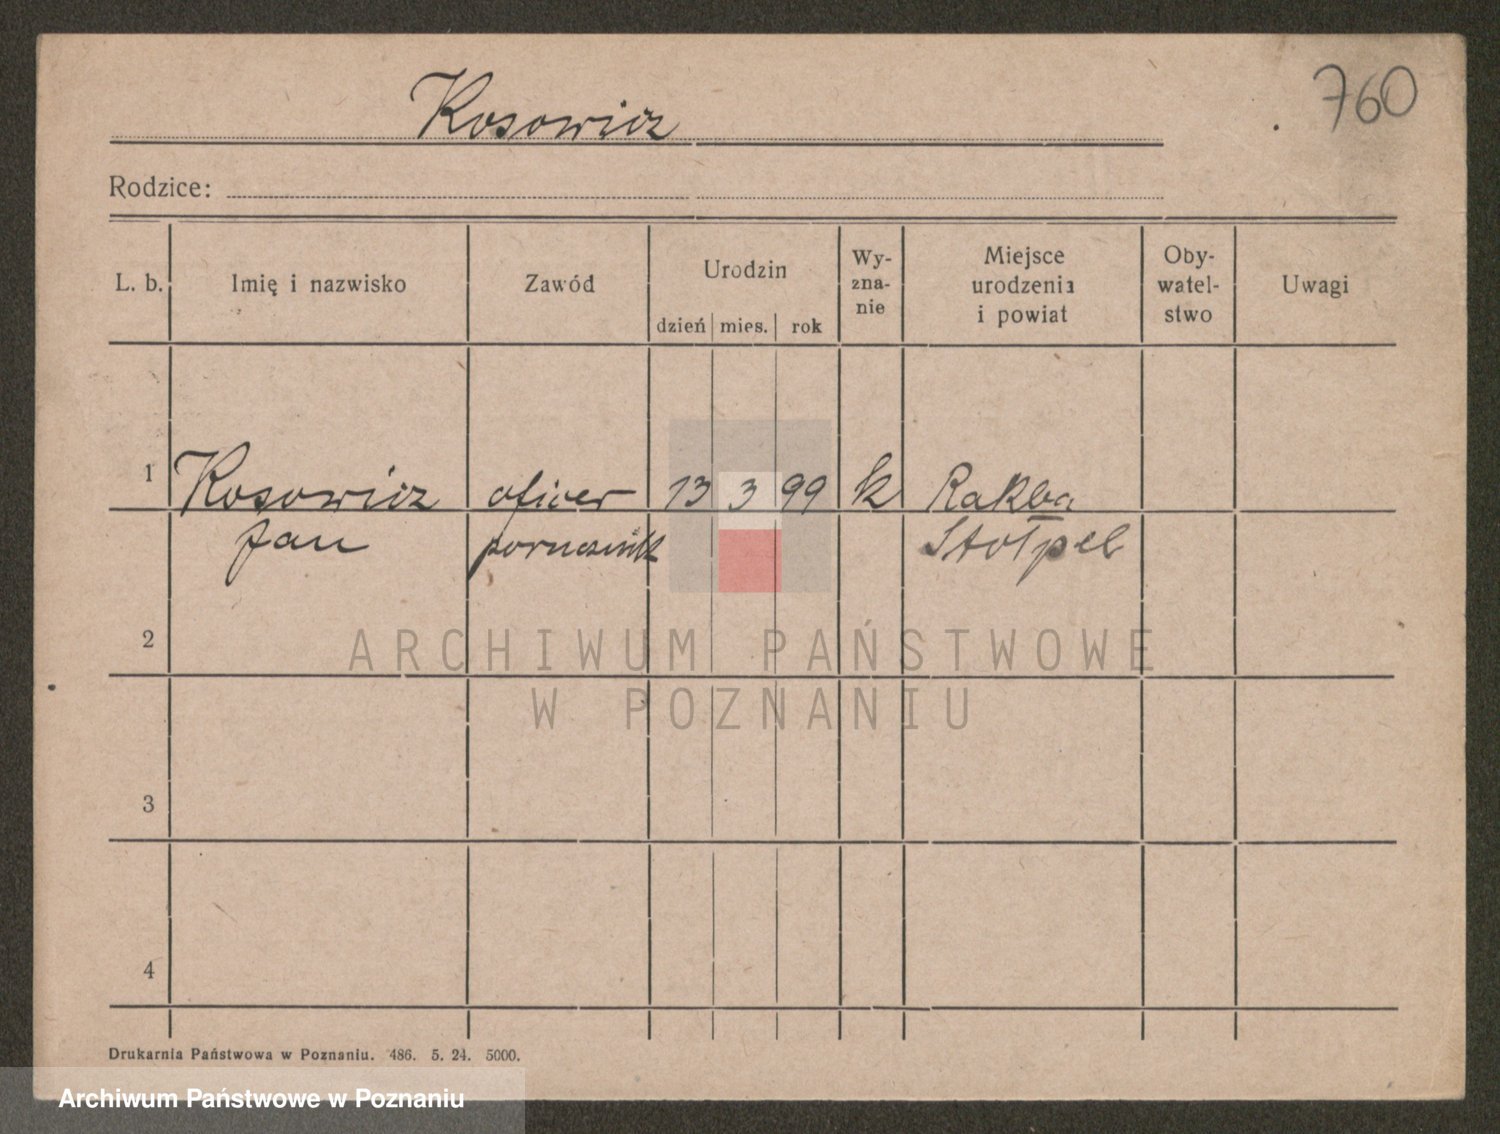 760
Kosowicz
Rodzice:
L. b. Imię i nazwisko Zawód Urodzin dzień mies. rok Wy-zna-nie Miejsce urodzenia i powiat Oby-watel-stwo Uwagi
1 Kosowicz oficer 13 3 99 k Rakba
Jan porucznik Stołpel
2
3
4
Drukarnia Państwowa w Poznaniu. 486. 5. 24. 5000.
ARCHIWUM PAŃSTWOWE
W POZNANIU
Archiwum Państwowe w Poznaniu